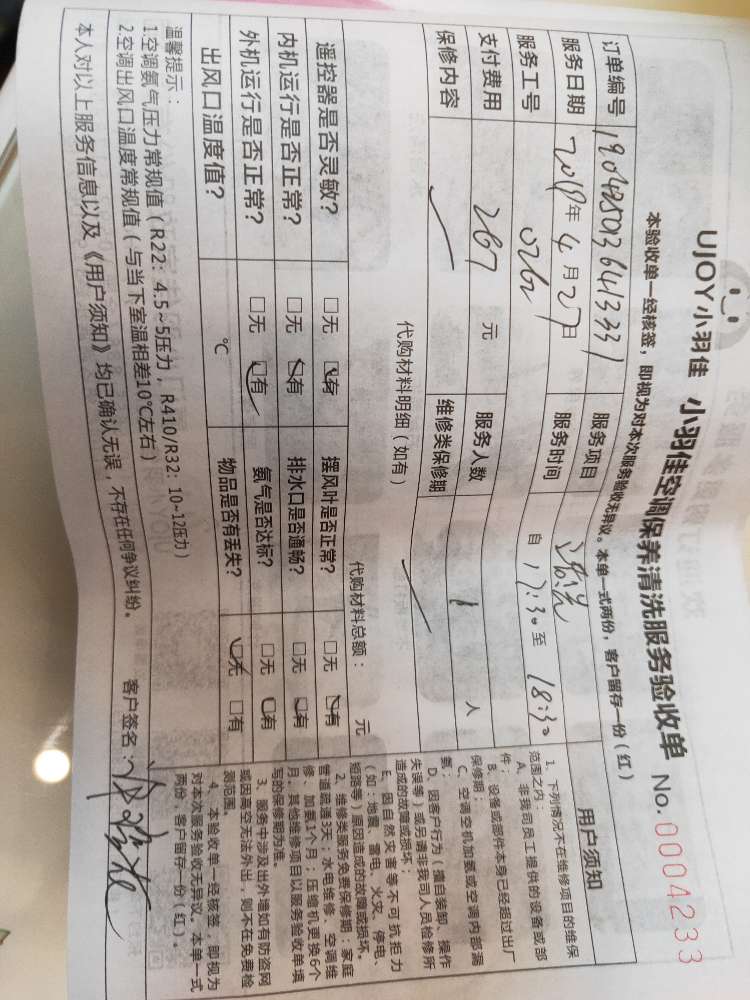 UJOY小羽佳 小羽佳空调保养清洗服务验收单 No.0004233
本验收单一经核签，即视为对本次服务验收无异议。本单一式两份，客户留存一份（红）
订单编号 服务项目 清洗
服务日期 2019年4月27日 服务时间 自 17:30 至 18:30
服务工号 0262
支付费用 267 元 服务人数 1 人
保修内容 维修类保修期
代购材料明细（如有）
代购材料总额： 元
遥控器是否灵敏？ □无 □有 摆风叶是否正常？ □无 □有
内机运行是否正常？ □无 □有 排水口是否通畅？ □无 □有
外机运行是否正常？ □无 □有 氨气是否达标？ □无 □有
出风口温度值？ ℃ 物品是否有丢失？ □无 □有
温馨提示：
1.空调氨气压力常规值（R22：4.5~5压力，R410/R32：10~12压力）
2.空调出风口温度常规值（与当下室温相差10℃左右）
本人对以上服务信息以及《用户须知》均已确认无误，不存在任何争议纠纷。 客户签名：
用户须知
1、下列情况不在维修项目的维保
范围之内：
A、非我司员工提供的设备或部
件；
B、设备或部件本身已经超过出厂
保修期；
C、空调空机加氨或空调内部漏
氨；
D、因客户行为（擅自装卸、操作
失误等）或另请非我司人员检修所
造成的故障或损坏；
E、因自然灾害等不可抗拒力
（如：地震、雷电、火灾、停电、
短路等）原因造成的故障或损坏。
2、维修类服务免费保修期：家庭
管道疏通3天；水电维修、空调维
修、加氨1个月；压缩机更换6个
月，其他维修项目以服务验收单填
写的保修期为准。
3、服务中涉及出外墙如有防盗网
或因高空无法外出，则不在免费检
测范围。
4、本验收单一经核签，即视为
对本次服务验收无异议。本单一式
两份，客户留存一份（红）。